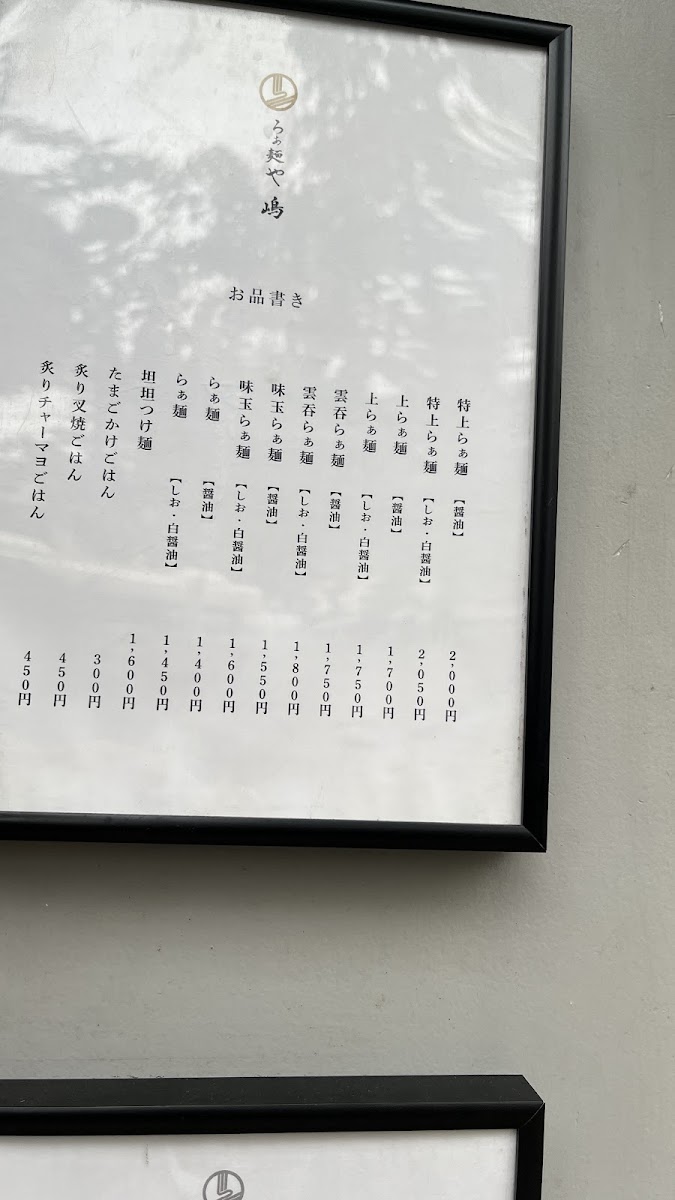 らぁ麺や 嶋
お品書き
特上らぁ麺 【醤油】 2,000円
特上らぁ麺 【しお・白醤油】 2,050円
上らぁ麺 【醤油】 1,700円
上らぁ麺 【しお・白醤油】 1,750円
雲呑らぁ麺 【醤油】 1,750円
雲呑らぁ麺 【しお・白醤油】 1,800円
味玉らぁ麺 【醤油】 1,550円
味玉らぁ麺 【しお・白醤油】 1,600円
らぁ麺 【醤油】 1,400円
らぁ麺 【しお・白醤油】 1,450円
坦坦つけ麺 1,600円
たまごかけごはん 300円
炙り叉焼ごはん 450円
炙りチャーマヨごはん 450円